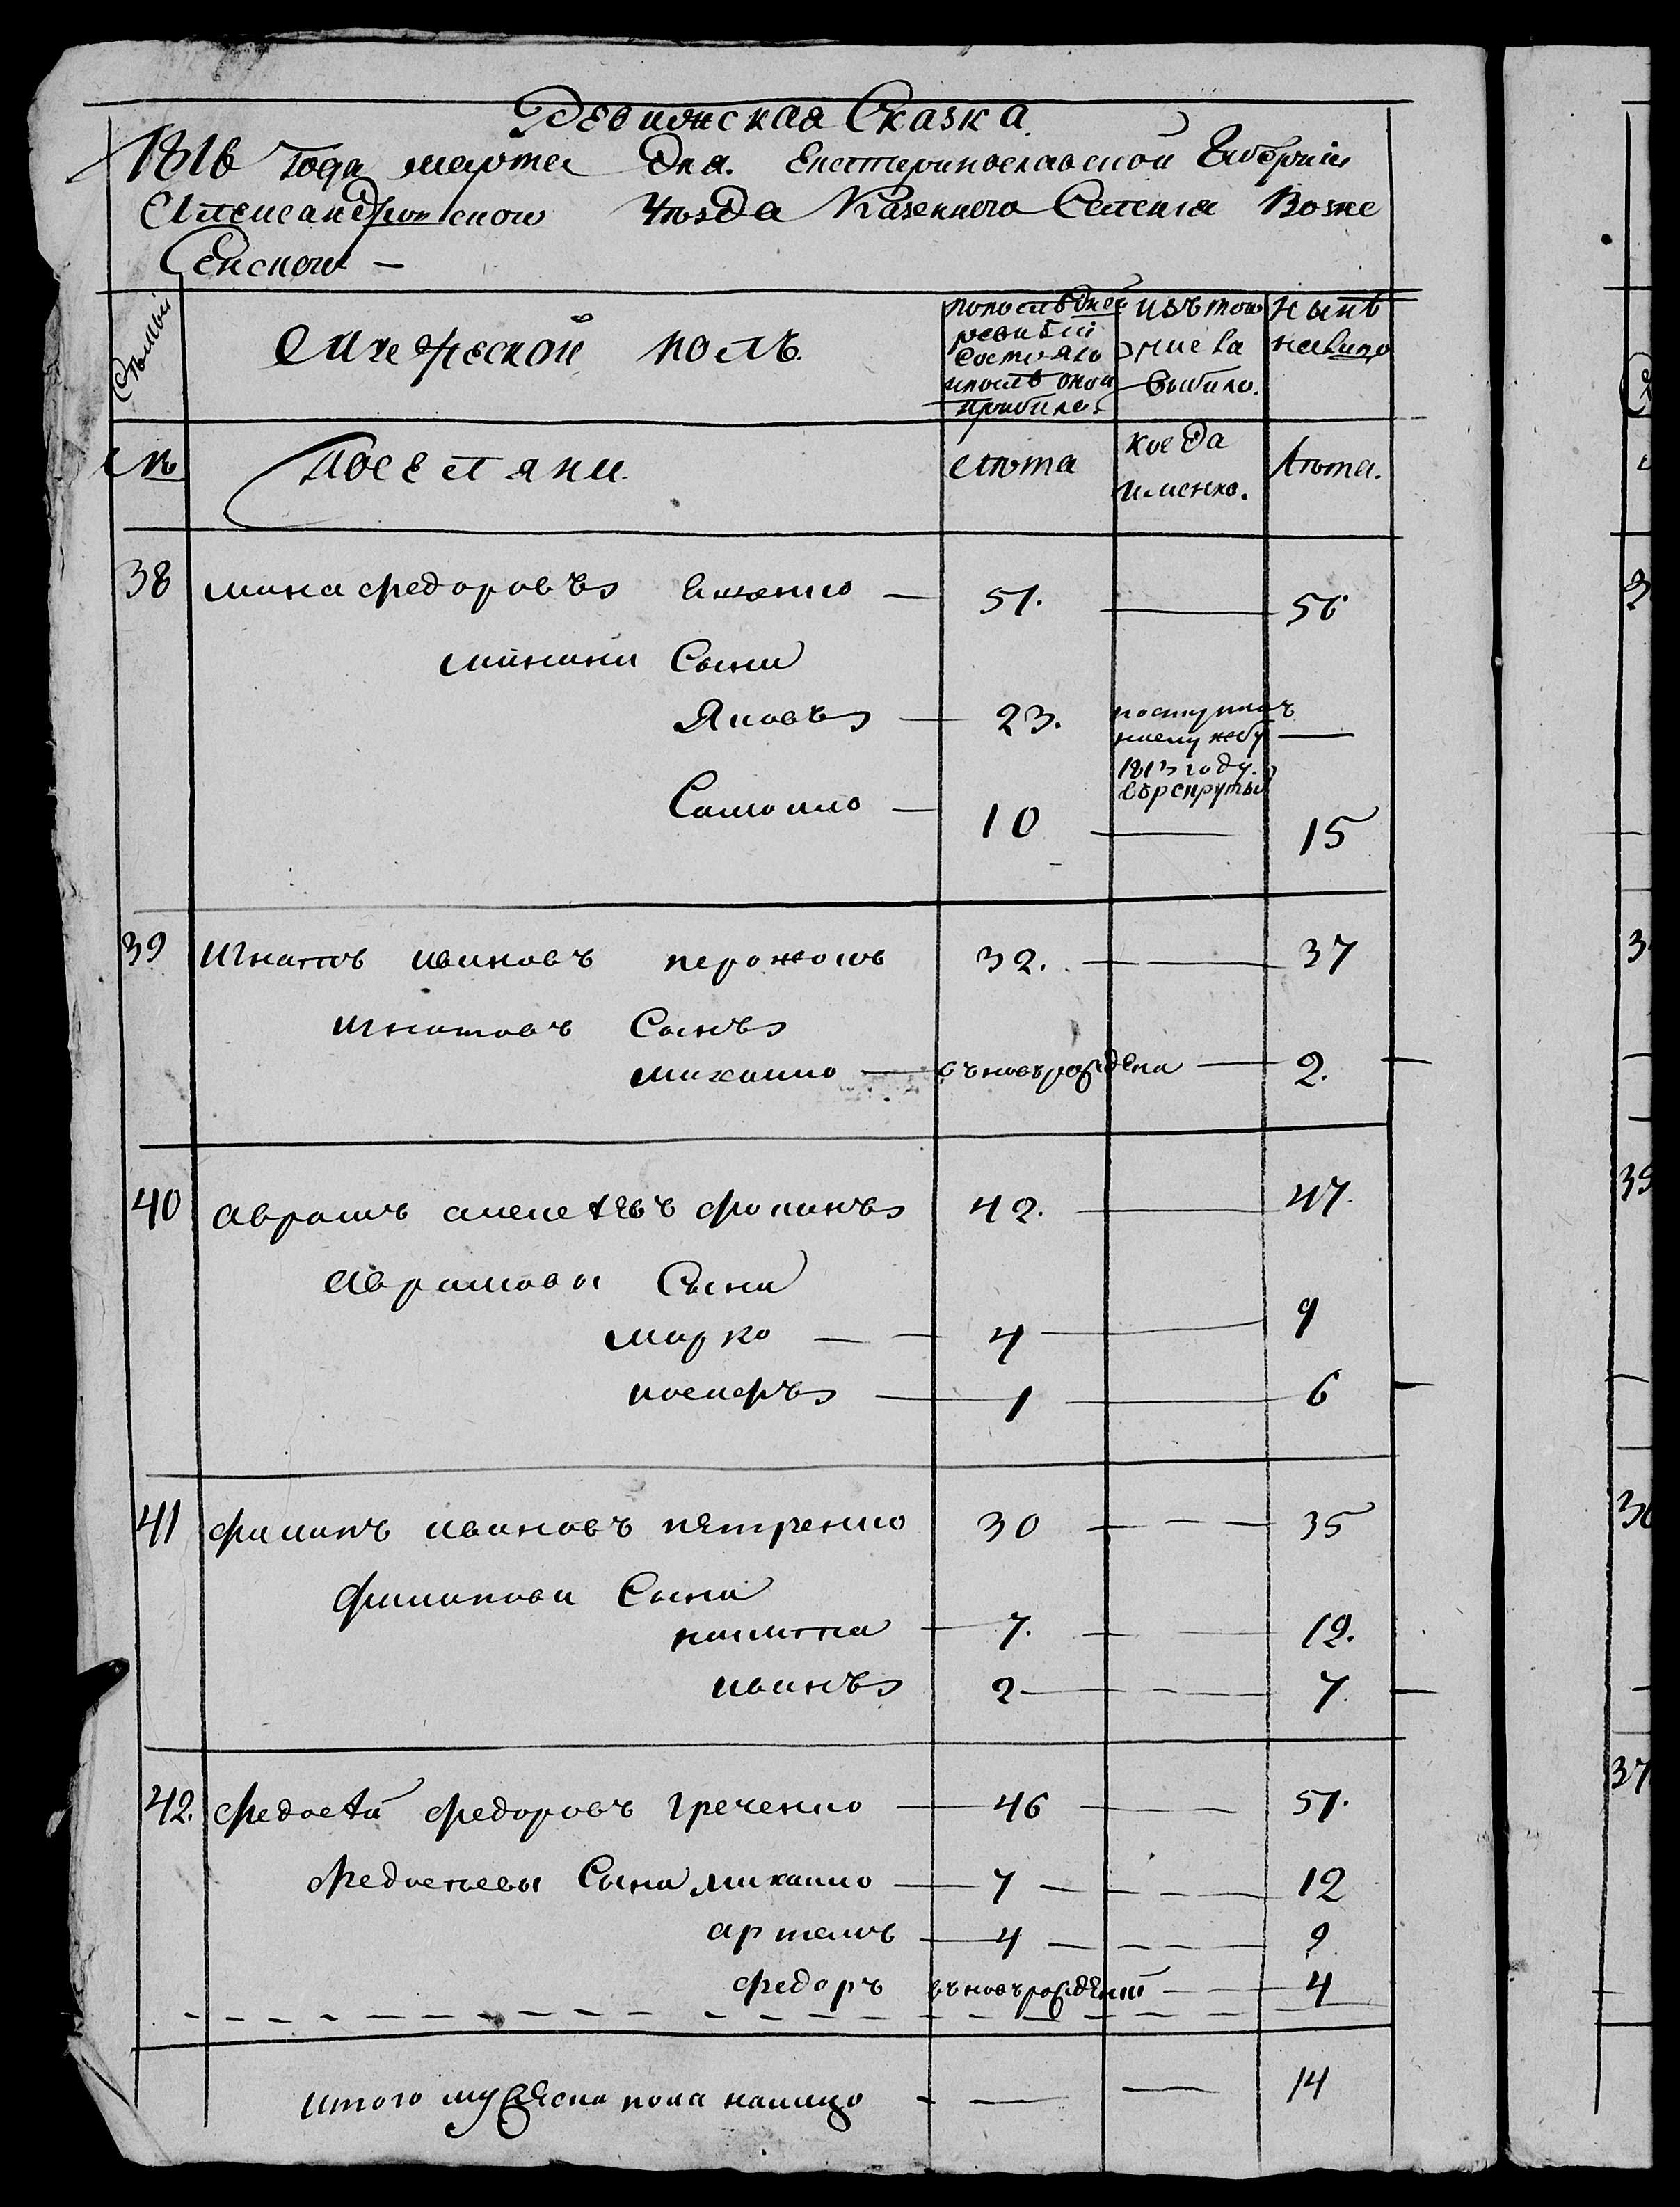 Ревижская Сказка
1816 Года марта Дня. Екатеринославской Губерніи
Александровского Уѣзда Казенного Селенія Возне
Сенского —
Семьи
Мужеской полъ.
попослѣдней ревизіи состояло ипослѣ оной прибыло
изътого числа выбыло.
Нынѣ налицо
№
Поселяни
Лѣта
когда именно.
Лѣта.
38 мина федоровъ — 51. — 56
минини Сыни
Яковъ — 23. 1813 году. —
Самоило — 10 — 15
39 Игнатъ ивановъ 32. — 37
игнатовъ Сынъ
михаило — въновърожденъ — 2.
40 аврамъ алексѣевъ фоминъ 42. — 47.
аврамови Сыни
марко — 4 — 9
иосифъ — 1 — 6
41 филипъ ивановъ петренко 30 — 35
филипови Сыни
никита — 7. — 12.
иванъ 2 — 7.
42. федосѣй федоровъ греченко — 46 — 51.
федосѣевы Сыни михаило — 7 — 12
артемъ — 4 — 9
федоръ въновърожденій — 4
итого мужеска пола налицо — — 14
38
39
36
37